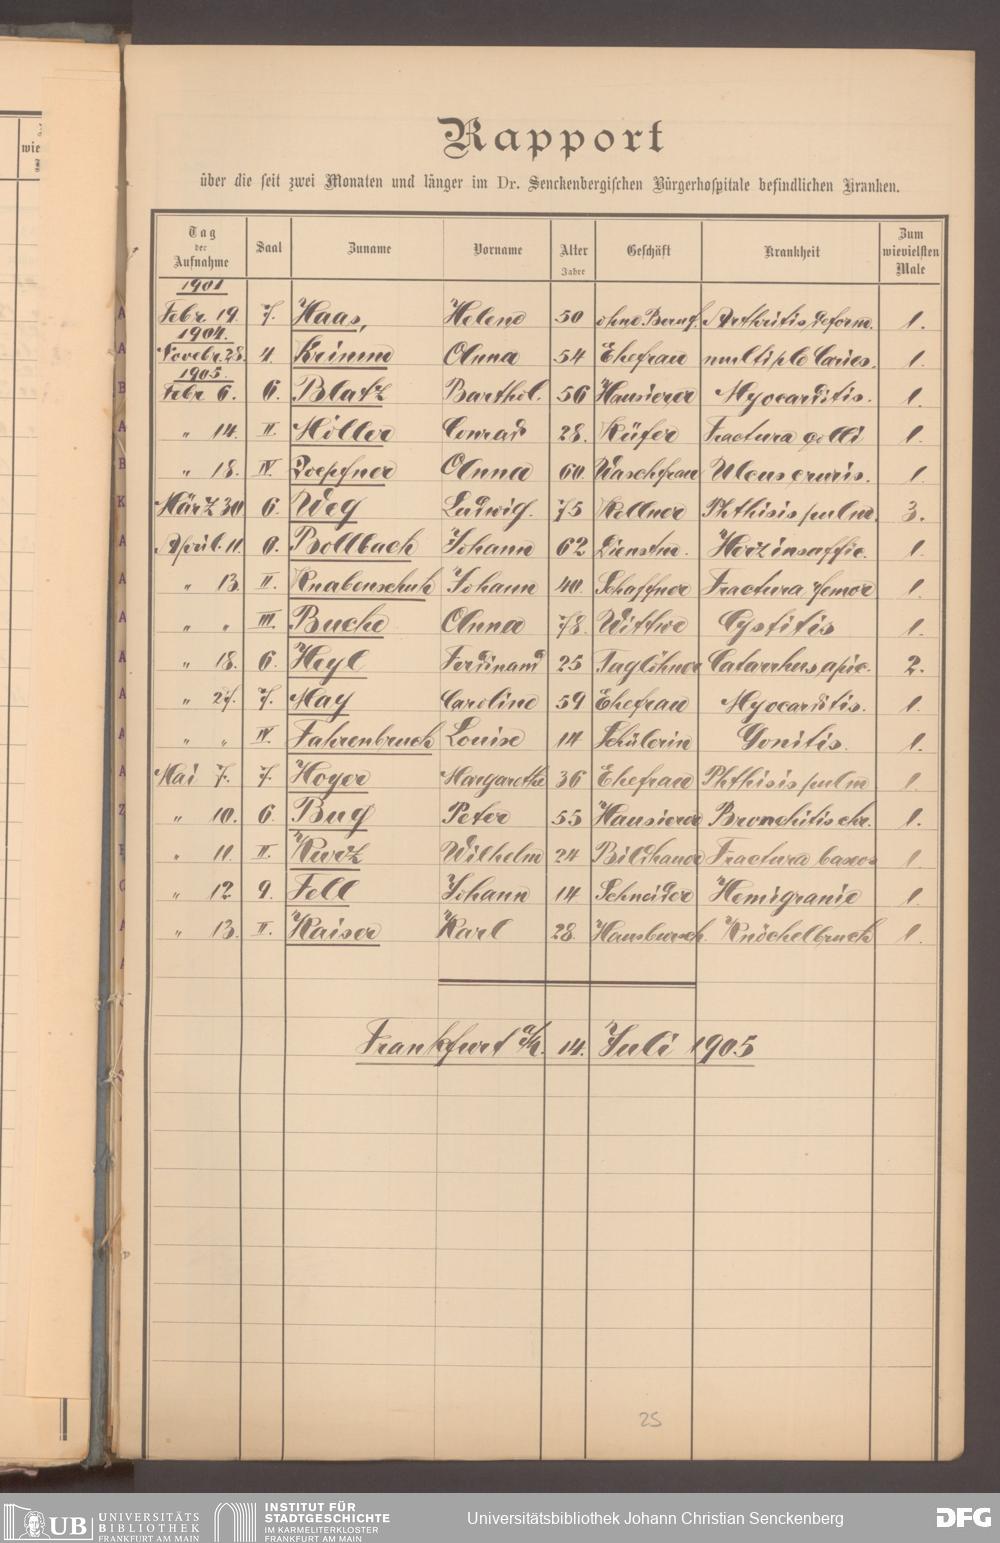 Rapport
über die seit zwei Monaten und länger im Dr. Senckenbergischen Bürgerhospitale befindlichen Kranken.
Tag der Aufnahme Saal Zuname Vorname Alter Jahre Geschäft Krankheit Zum wievielsten Male
1901
Febr. 19. 7. Haas, Helene 50 ohne Beruf. Arthritis deform. 1.
1904.
Novebr. 28. 4. Krimm Anna 54 Ehefrau multiple Caries. 1.
1905.
Febr. 6. 6. Blatz Barthol. 56 Hausierer Myocarditis. 1.
" 14. II. Möller Conrad 28. Küfer Fractura colli 1.
" 18. IV. Loepfner Anna 60. Waschfrau Ulcus cruris. 1.
März 30 6. Weg Ludwig. 75 Kellner Phthisis pulm. 3.
April. 11. 6. Bollbach Johann 62 Dienstm. Herzinsuffic. 1.
" 13. II. Knabenschuh Johann 40. Schaffner Fractura femor 1.
" " III. Buche Anna 78. Wittwe Cystitis 1.
" 18. 6. Heyl Ferdinand 25 Taglöhner Catarrhus apic. 2.
" 27. 7. May Caroline 59 Ehefrau Myocarditis. 1.
" " IV. Fahrenbruch Louise 14 Schülerin Gonitis. 1.
Mai 7. 7. Hoyer Margarethe 36 Ehefrau Phthisis pulm 1.
" 10. 6. Bug Peter 55 Hausierer Bronchitis chr. 1.
" 11. II. Kurz Wilhelm 24 Bildhauer Fractura 1.
" 12 9. Fell Johann 14 Schneider Hemigranie 1.
" 13. II. Kaiser Karl 28. Hausbursch. Knöchelbruch 1.
Frankfurt a/M. 14. Juli 1905
25
UB UNIVERSITÄTS BIBLIOTHEK FRANKFURT AM MAIN
INSTITUT FÜR STADTGESCHICHTE IM KARMELITERKLOSTER FRANKFURT AM MAIN
Universitätsbibliothek Johann Christian Senckenberg
DFG